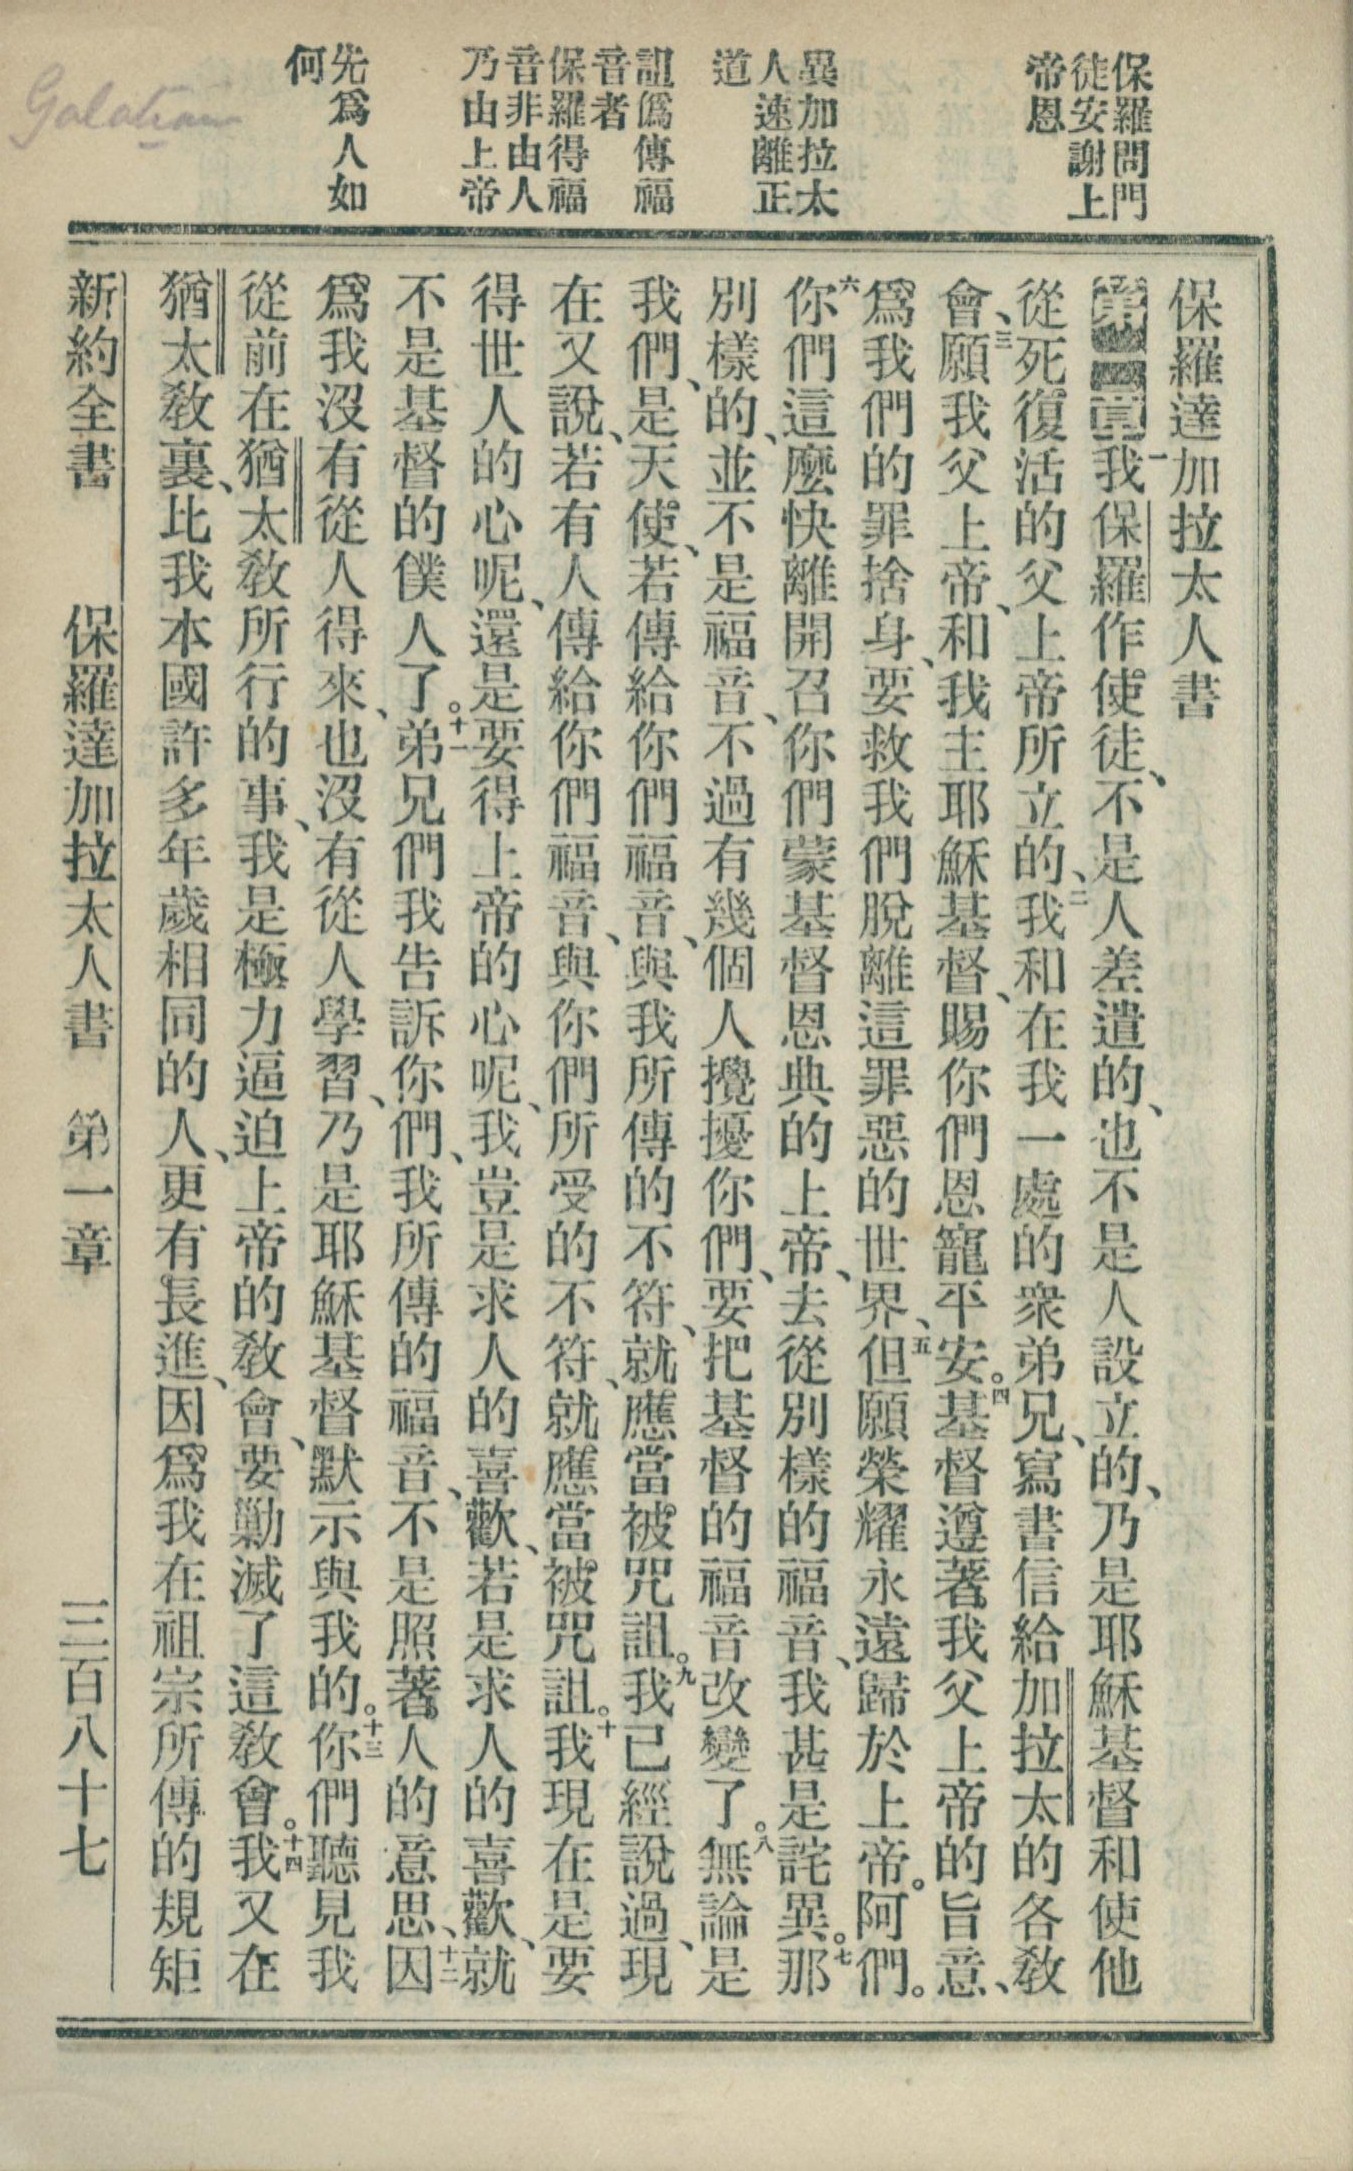 保羅問門
徒安謝上
帝恩
異加拉太
人速離正
道
詛僞傳福
音者
保羅得福
音非由人
乃由上帝
先爲人如
何
Galatians
保羅達加拉太人書
第一章一我保羅作使徒、不是人差遣的、也不是人設立的、乃是耶穌基督和使他
從死復活的父上帝所立的、二我和在我一處的衆弟兄、寫書信給加拉太的各敎
會、三願我父上帝、和我主耶穌基督、賜你們恩寵平安。四基督遵著我父上帝的旨意、
爲我們的罪捨身、要救我們脫離這罪惡的世界、五但願榮耀永遠歸於上帝。阿們。
六你們這麼快離開召你們蒙基督恩典的上帝、去從別樣的福音、我甚是詫異。七那
別樣的、並不是福音、不過有幾個人攪擾你們、要把基督的福音改變了。八無論是
我們、是天使、若傳給你們福音、與我所傳的不符、就應當被咒詛。九我已經說過、現
在又說、若有人傳給你們福音、與你們所受的不符、就應當被咒詛。十我現在是要
得世人的心呢、還是要得上帝的心呢、我豈是求人的喜歡、若是求人的喜歡、就
不是基督的僕人了。十一弟兄們我告訴你們、我所傳的福音、不是照著人的意思、十二因
爲我沒有從人得來、也沒有從人學習、乃是耶穌基督默示與我的。十三你們聽見我
從前在猶太敎所行的事、我是極力逼迫上帝的敎會、要勦滅了這敎會。十四我又在
猶太敎裏、比我本國許多年歲相同的人、更有長進、因爲我在祖宗所傳的規矩
新約全書 保羅達加拉太人書 第一章 三百八十七